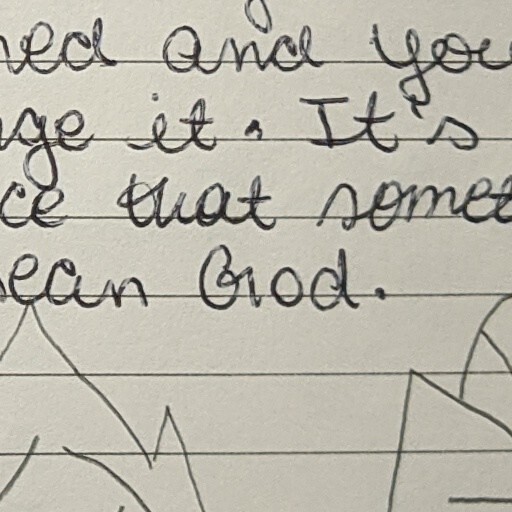 ned and you
nge it. It's
ce that somet
ean God.